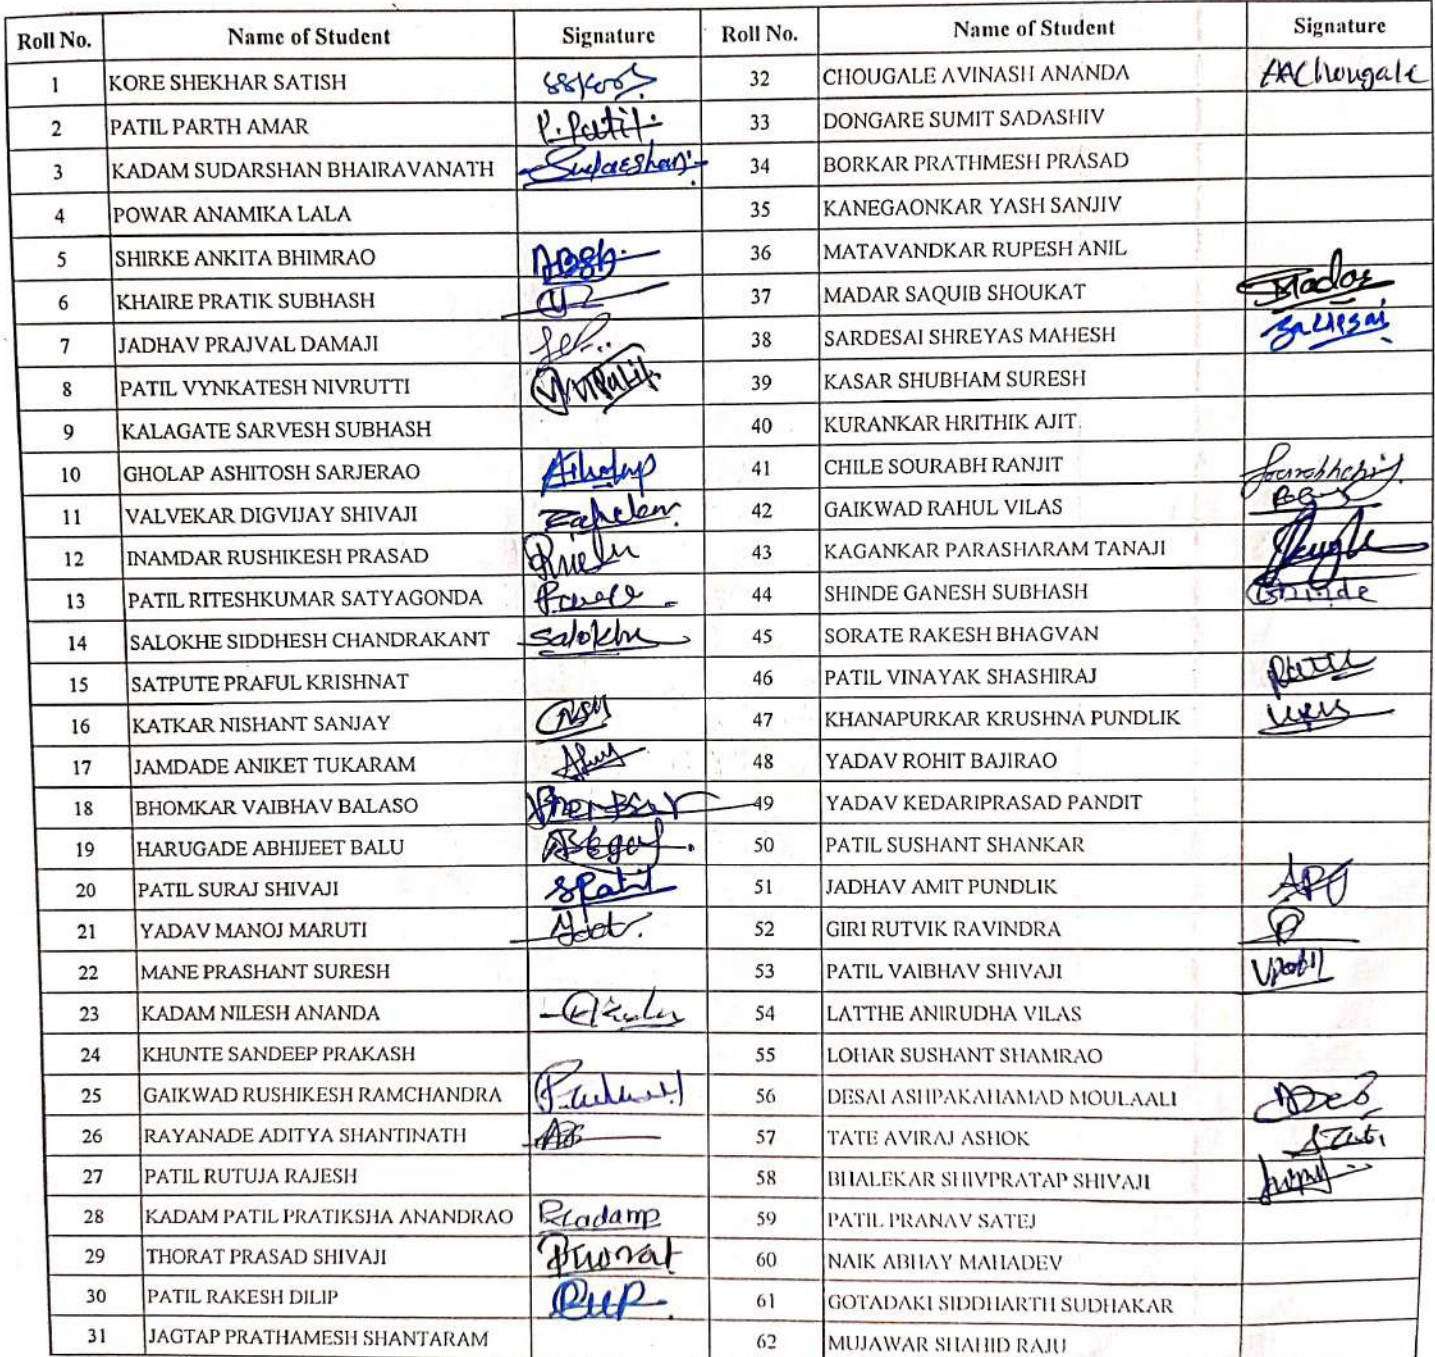 Roll No. Name of Student Signature Roll No. Name of Student Signature
1 KORE SHEKHAR SATISH 32 CHOUGALE AVINASH ANANDA AAChougale
2 PATIL PARTH AMAR P.Patil 33 DONGARE SUMIT SADASHIV
3 KADAM SUDARSHAN BHAIRAVANATH Sudarshan 34 BORKAR PRATHMESH PRASAD
4 POWAR ANAMIKA LALA 35 KANEGAONKAR YASH SANJIV
5 SHIRKE ANKITA BHIMRAO 36 MATAVANDKAR RUPESH ANIL
6 KHAIRE PRATIK SUBHASH 37 MADAR SAQUIB SHOUKAT
7 JADHAV PRAJVAL DAMAJI 38 SARDESAI SHREYAS MAHESH
8 PATIL VYNKATESH NIVRUTTI 39 KASAR SHUBHAM SURESH
9 KALAGATE SARVESH SUBHASH 40 KURANKAR HRITHIK AJIT
10 GHOLAP ASHITOSH SARJERAO 41 CHILE SOURABH RANJIT
11 VALVEKAR DIGVIJAY SHIVAJI 42 GAIKWAD RAHUL VILAS
12 INAMDAR RUSHIKESH PRASAD 43 KAGANKAR PARASHARAM TANAJI
13 PATIL RITESHKUMAR SATYAGONDA 44 SHINDE GANESH SUBHASH GShinde
14 SALOKHE SIDDHESH CHANDRAKANT Salokhe 45 SORATE RAKESH BHAGVAN
15 SATPUTE PRAFUL KRISHNAT 46 PATIL VINAYAK SHASHIRAJ
16 KATKAR NISHANT SANJAY 47 KHANAPURKAR KRUSHNA PUNDLIK
17 JAMDADE ANIKET TUKARAM 48 YADAV ROHIT BAJIRAO
18 BHOMKAR VAIBHAV BALASO 49 YADAV KEDARIPRASAD PANDIT
19 HARUGADE ABHIJEET BALU 50 PATIL SUSHANT SHANKAR
20 PATIL SURAJ SHIVAJI SPatil 51 JADHAV AMIT PUNDLIK
21 YADAV MANOJ MARUTI 52 GIRI RUTVIK RAVINDRA
22 MANE PRASHANT SURESH 53 PATIL VAIBHAV SHIVAJI VPatil
23 KADAM NILESH ANANDA 54 LATTHE ANIRUDHA VILAS
24 KHUNTE SANDEEP PRAKASH 55 LOHAR SUSHANT SHAMRAO
25 GAIKWAD RUSHIKESH RAMCHANDRA 56 DESAI ASHPAKAHAMAD MOULAALI
26 RAYANADE ADITYA SHANTINATH 57 TATE AVIRAJ ASHOK
27 PATIL RUTUJA RAJESH 58 BHALEKAR SHIVPRATAP SHIVAJI
28 KADAM PATIL PRATIKSHA ANANDRAO 59 PATIL PRANAV SATEJ
29 THORAT PRASAD SHIVAJI 60 NAIK ABHAY MAHADEV
30 PATIL RAKESH DILIP 61 GOTADAKI SIDDHARTH SUDHAKAR
31 JAGTAP PRATHAMESH SHANTARAM 62 MUJAWAR SHAHID RAJU